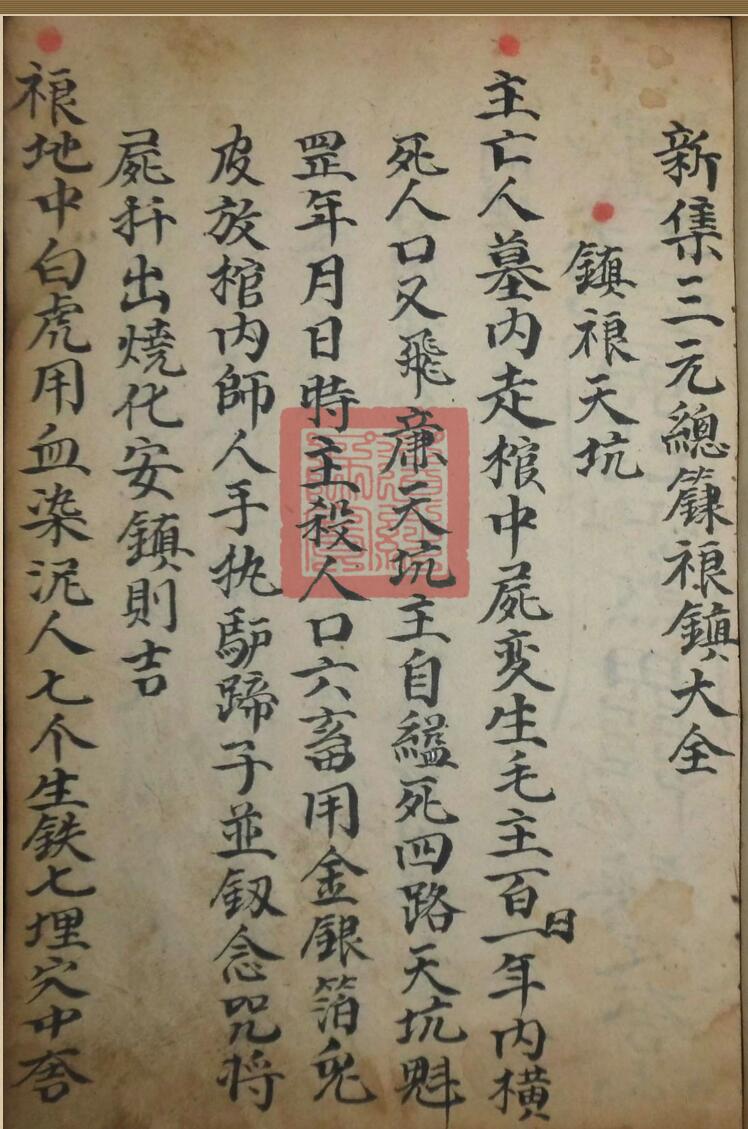 新集三元總籙禳鎮大全
鎮禳天坑
主亡人墓内走棺中屍变生毛主百日一年内橫
死人口又飛廉天坑主自縊死四路天坑魁
罡年月日時主殺人口六畜用金銀箔兎
皮放棺内師人手执馿蹄子並釼念咒将
屍拝出燒化安鎮則吉
禳地中白虎用血染泥人七个生鉄七埋穴中